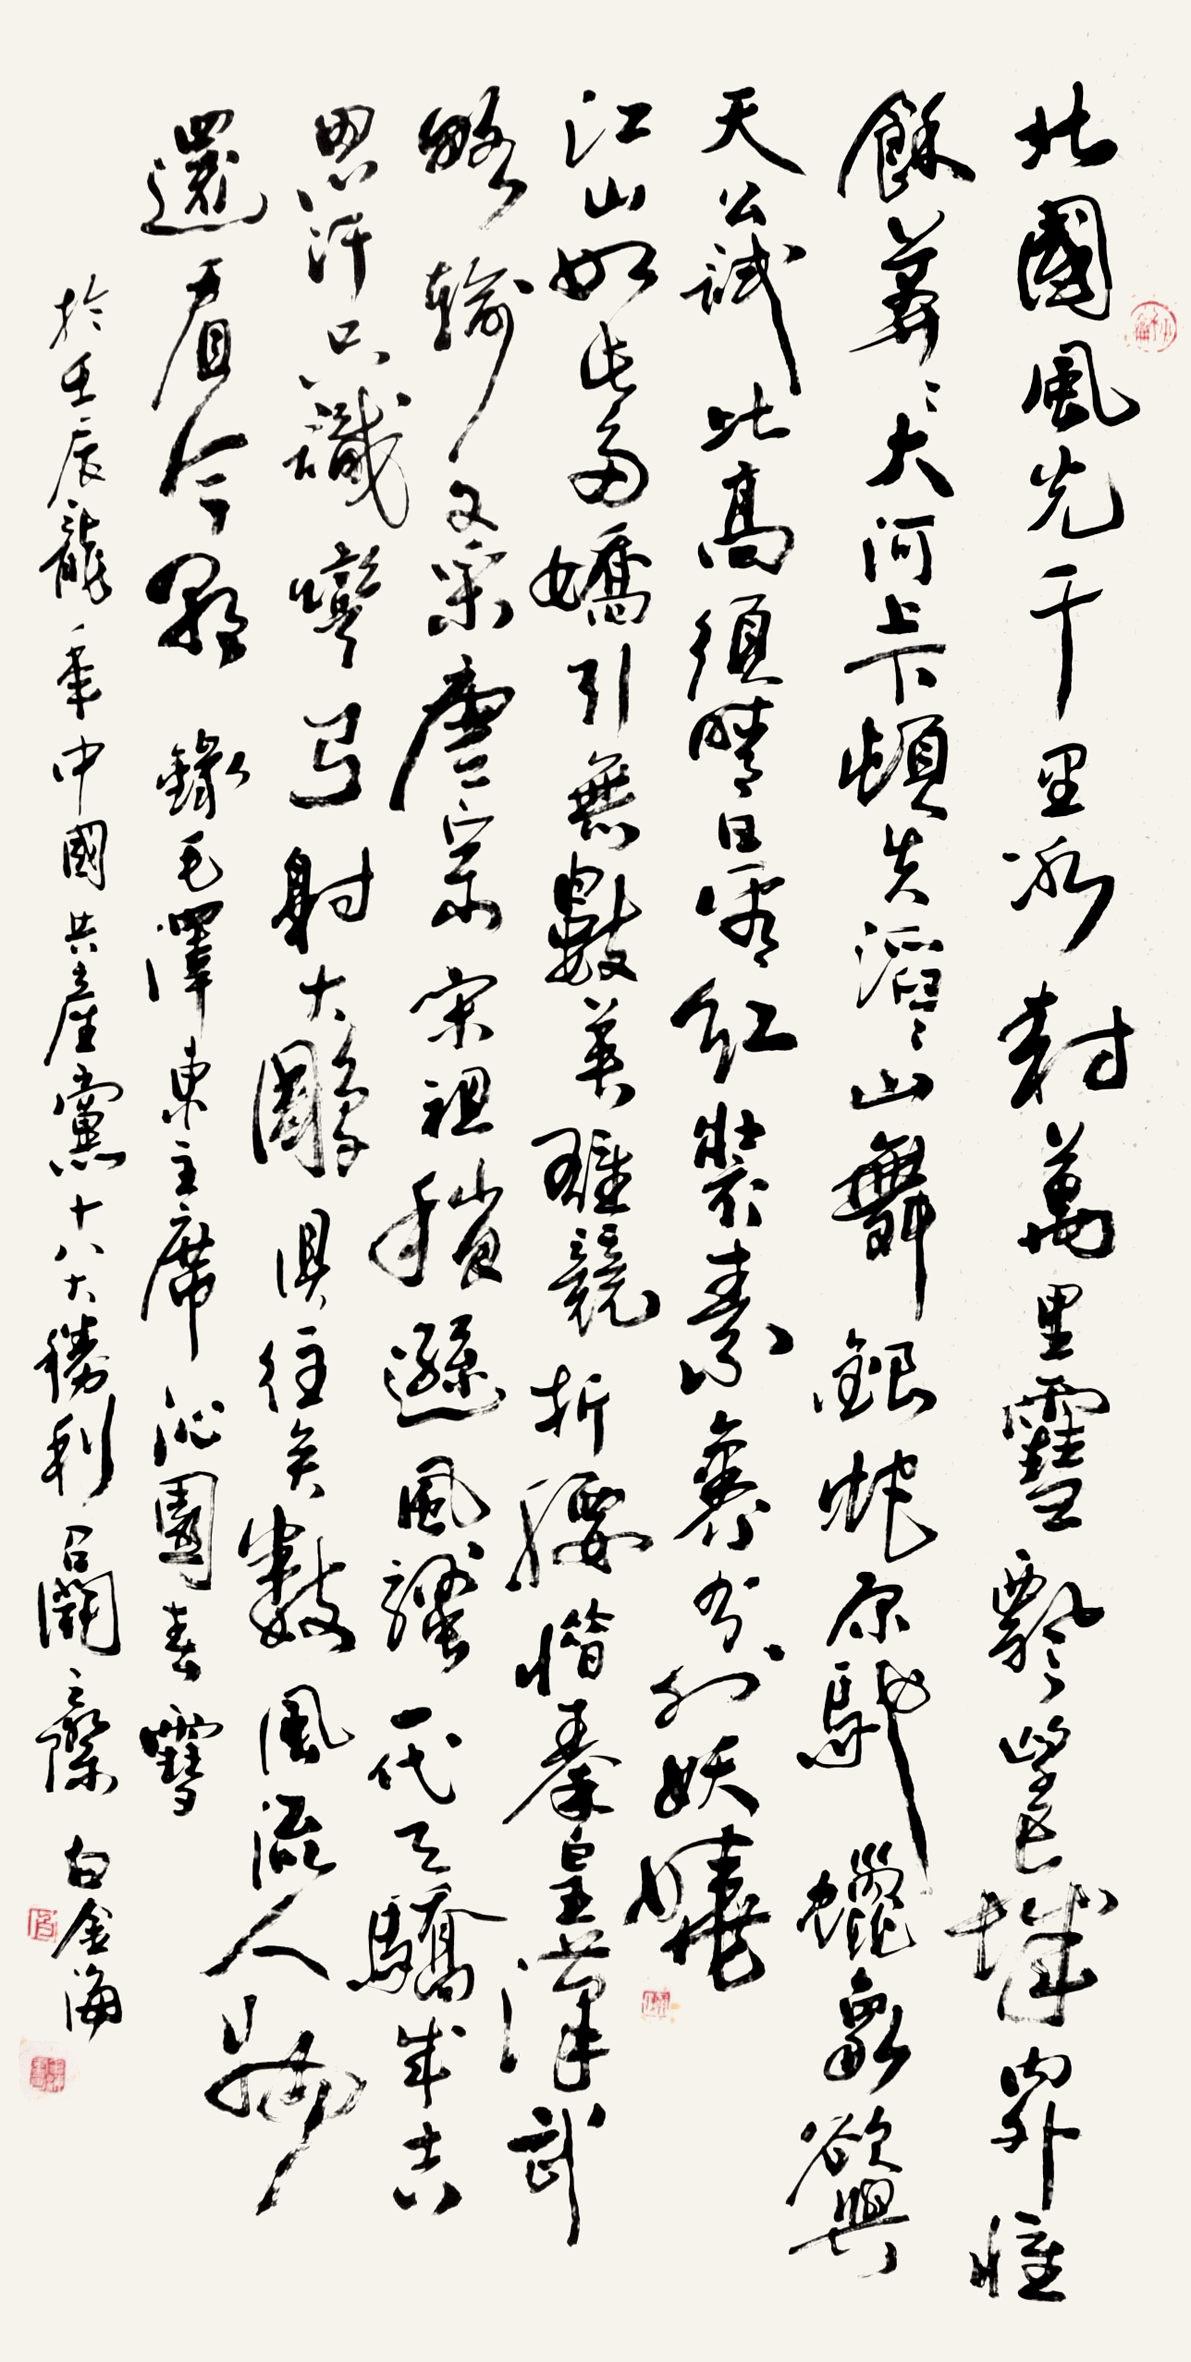 北國風光千里冰封萬里雪飄望長城內外惟
餘莽〻大河上下頓失滔〻山舞銀蛇原馳蠟象欲與
天公試比高須晴日看紅裝素裹分外妖嬈
江山如此多嬌引無數英雄競折腰惜秦皇漢武
略輸文采唐宗宋祖稍遜風騷一代天驕成吉
思汗只識彎弓射大雕俱往矣數風流人物
還看今朝 錄毛澤東主席 沁園春雪
於壬辰龍年中國共產黨十八大勝利召開之際 白金海